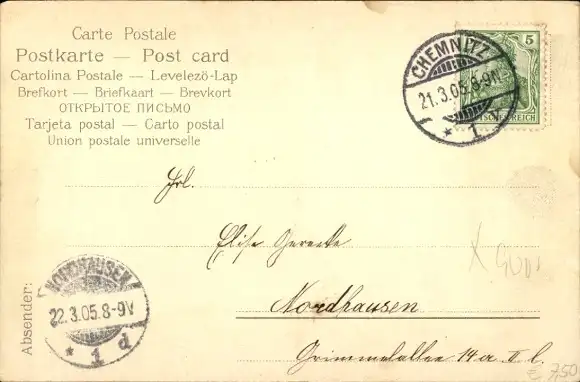 Carte Postale
Postkarte — Post card
Cartolina Postale — Levelező-Lap
Brefkort — Briefkaart — Brevkort
ОТКРЫТОЕ ПИСЬМО
Tarjeta postal — Carto postal
Union postale universelle
5
DEUTSCHES REICH
CHEMNITZ
21.3.05.8-9N.
* 1
Frl.
Elise Gerecke
Nordhausen
Grimmelallee 14a II l.
NORDHAUSEN
22.3.05.8-9V
* 1 d
Absender:
€ 7,50